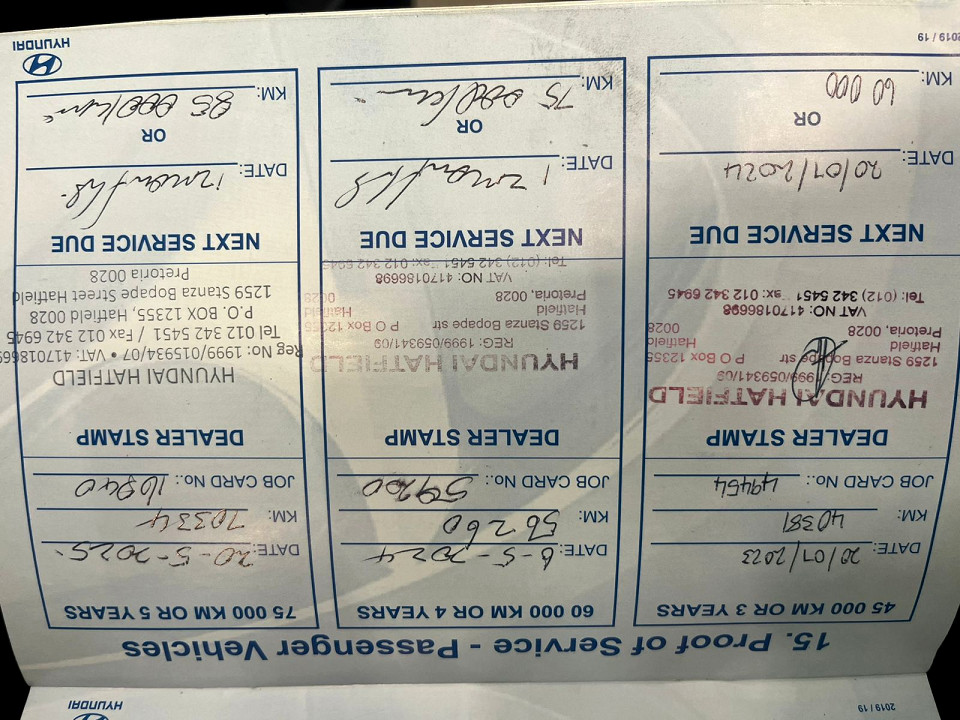 2019 / 19
HYUNDAI
15. Proof of Service - Passenger Vehicles
45 000 KM OR 3 YEARS
DATE: 20/07/2023
KM: 40381
JOB CARD No.: 49454
DEALER STAMP
HYUNDAI HATFIELD
REG: 1999/059341/09
1259 Stanza Bopape str P O Box 12355
Hatfield Hatfield
Pretoria, 0028 0028
VAT NO: 4170186698
Tel: (012) 342 5451 ax: 012 342 6945
NEXT SERVICE DUE
DATE: 20/07/2024
OR
KM: 60 000
60 000 KM OR 4 YEARS
DATE: 6-5-2024
KM: 56260
JOB CARD No.: 59200
DEALER STAMP
HYUNDAI HATFIELD
REG: 1999/059341/09
1259 Stanza Bopape str P O Box 12355
Hatfield Hatfield
Pretoria, 0028 0028
VAT NO: 4170186698
Tel: (012) 342 5451 ax: 012 342 6945
NEXT SERVICE DUE
DATE: 12months
OR
KM: 75 000km
75 000 KM OR 5 YEARS
DATE: 20-5-2025
KM: 70334
JOB CARD No.: 16940
DEALER STAMP
HYUNDAI HATFIELD
Reg No: 1999/015934/07 • VAT: 417018669
Tel 012 342 5451 / Fax 012 342 6945
P.O. BOX 12355, Hatfield 0028
1259 Stanza Bopape Street Hatfield
Pretoria 0028
NEXT SERVICE DUE
DATE: 12months
OR
KM: 85 000km
2019 / 19
HYUNDAI